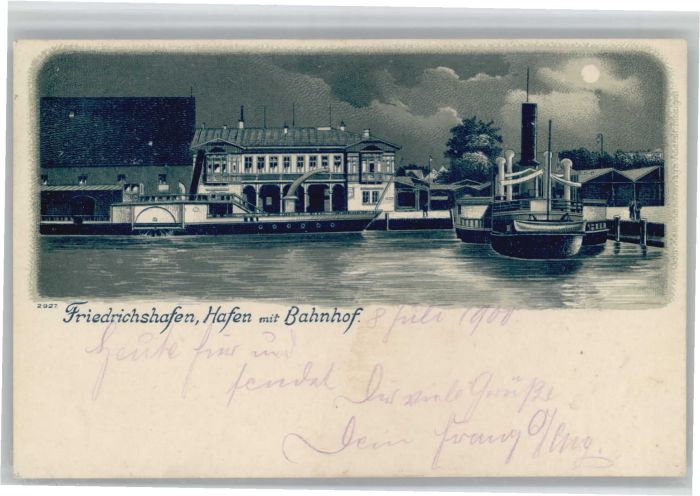 2927.
Friedrichshafen, Hafen mit Bahnhof.
8 Juli 1900
Heute hier und
sendet Dir viele Grüße
Dein Franz